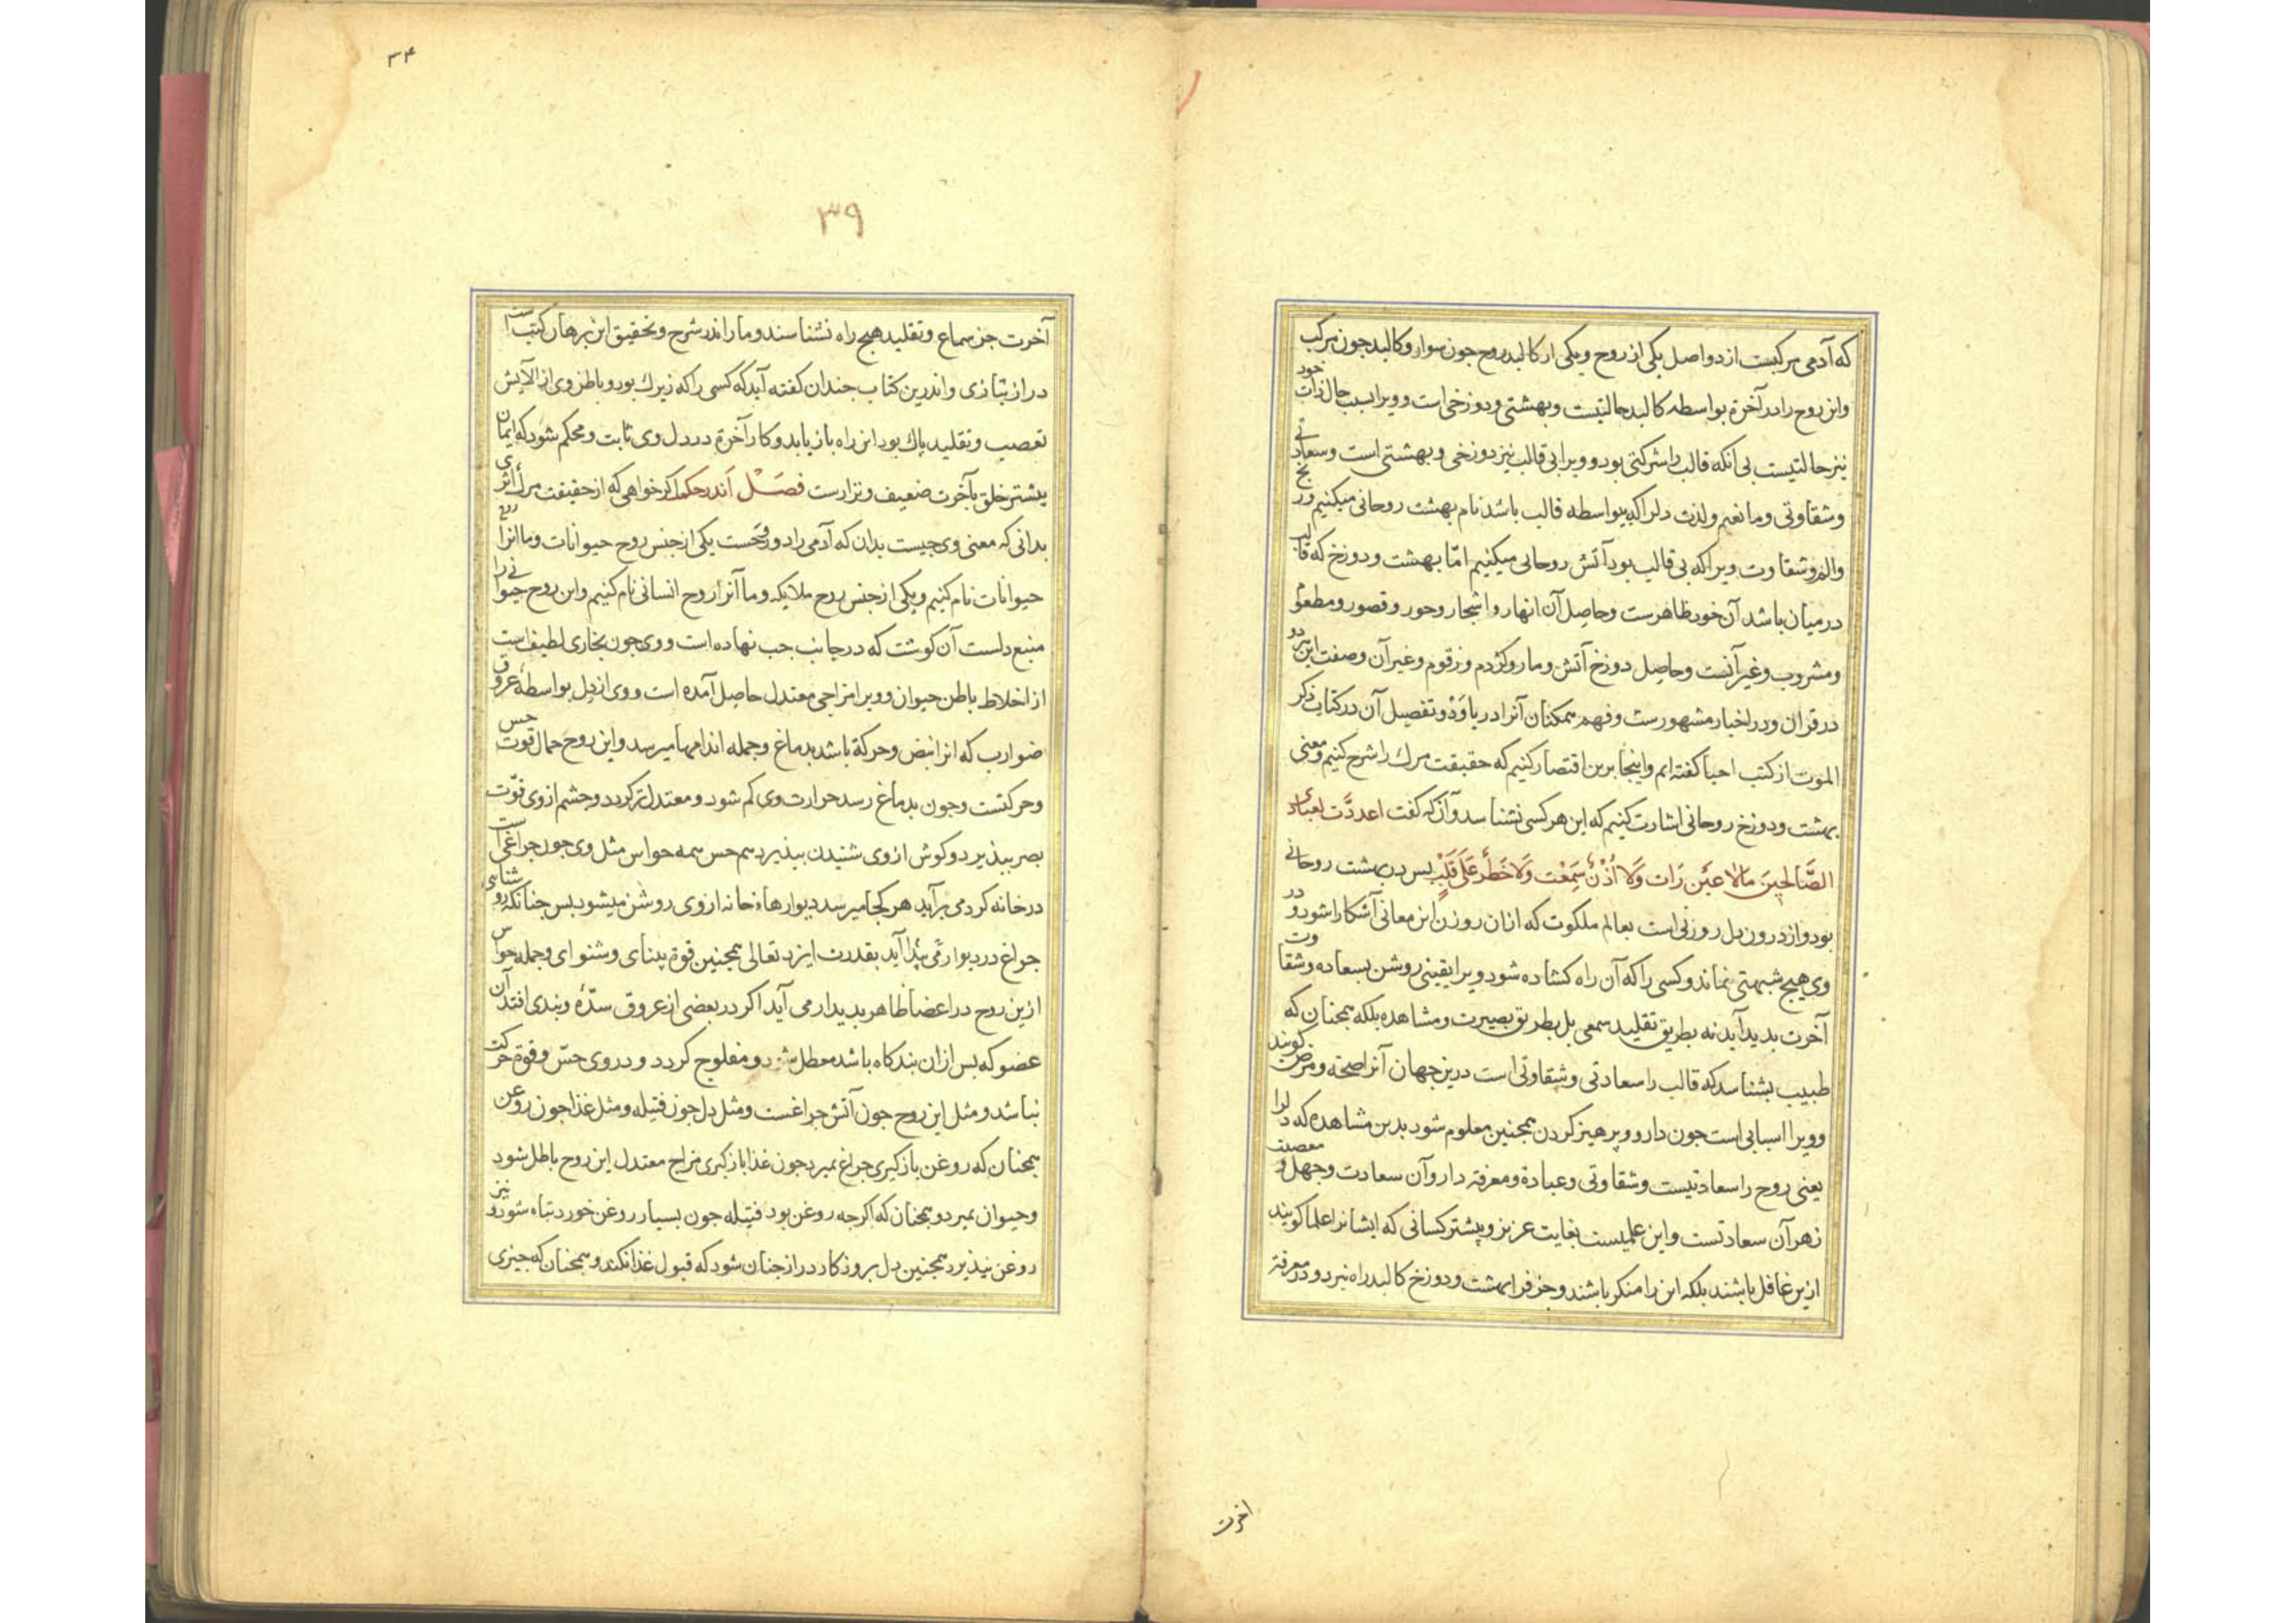 که آدمی مرکبست از دو اصل یکی از روح و یکی از کالبد روح جون سوار و کالبد جون مرکب
واین روح را در آخرة بواسطه کالبد حالتیست وبهشتی ودوزخی است وویرا بسبب حال ذات خود
نیز حالتیست بی آنکه قالب را شرکتی بود وویرا بی قالب نیز دوزخی وبهشتی است وسعادتی
وشقاوتی وما نعیم ولذت دل را که بیواسطه قالب باشد نام بهشت روحانی میکنیم ورنج
والم وشقاوت ویرا که بی قالب بود آتش روحانی میکنیم امّا بهشت ودوزخ که قالب
درمیان باشد آن خود ظاهرست وحاصل آن انهار واشجار وحور وقصور ومطعوم
ومشروب وغیر آنست وحاصل دوزخ آتش ومار وکژدم وزقوم وغیر آن وصفت این هر دو
در قرآن ودر اخبار مشهورست وفهم همکنان آنرا دریابد وتفصیل آن در کتاب ذکر
الموت از کتب احیا کفته ایم واینجا برین اقتصار کنیم که حقیقت مرك را شرح کنیم ومعنی
بهشت ودوزخ روحانی اشارت کنیم که این هر کسی نشناسد وآنکه کفت اعددّت لعبادی
الصَّالحِینَ مالا عیَن رَات وَلَا اُذُنٌ سَمِعْت وَلَا خَطَرَ عَلَی قَلْبِ بس در بهشت روحانی
بود واز درون دل روزنی است بعالم ملکوت که ازان روزن این معانی آشکارا شود ودر
وی هیج شبهتی نماند وکسی را که آن راه کشاده شود ویرا یقینی روشن بسعاده وشقاوت
آخرت بدید آید نه بطریق تقلید سمعی بل بطریق بصیرت ومشاهده بلکه همجنان که
طبیب بشناسد که قالب را سعادتی وشقاوتی است درین جهان آنرا صحة ومرض کویند
وویرا اسبابی است جون دارو وپرهیز کردن همجنین معلوم شود بدین مشاهده که دلرا
یعنی روح را سعادتیست وشقاوتی وعبادة ومعرفة داروآن سعادت وجهل ومعصیت
زهر آن سعادتست واین علمیست بغایت عزیز وبیشتر کسانی که ایشانرا علما کویند
ازین غافل باشند بلکه این را منکر باشند وجز فرا بهشت ودوزخ کالبد راه نبرند ودر معرفة
اخرت
۳۴
۳۹
آخرت جز سماع وتقلید هیج راه نشناسند ومارا اندر شرح وتحقیق این برهان کتب است
دراز بتازی واندرین کتاب جندان کفته آید که کسی را که زیرك بود وباطن وی از آلایش
تعصب وتقلید پاك بود این راه باز یابد وکار آخرة در دل وی ثابت ومحکم شود که ایمان
بیشتر خلق بآخرت ضعیف ونزارست فصَـْل اَندر حکم اکر خواهی که از حقیقت مرك اثری
بدانی که معنی وی جیست بدان که آدمی را دو روحست یکی از جنس روح حیوانات وما انرا روح
حیوانات نام کنیم ویکی از جنس روح ملایکه وما آنرا روح انسانی نام کنیم واین روح حیوانی را
منبع دلست آن کوشت که در جانب جب نهاده است ووی جون بخاری لطیف است
از اخلاط باطن حیوان وویرا مزاجی معتدل حاصل آمده است ووی از دل بواسطهٔ عروق
ضوارب که انرا نبض وحرکة باشد بدماغ وجمله اندامها میرسد واین روح حمال قوت حس
وحرکتست وجون بدماغ رسد حرارت وی کم شود ومعتدل تر کردد وجشم از وی قوّت
بصر ببذیرد وکوش از وی شنیدن ببذیرد هم حس همه حواس مثل وی جون جراغی است
در خانه کرد می برآید هر کجا میرسد دیوارهاء خانه از وی روشن میشود بس جنانکه روشنایی
جراغ در دیوار می پیدا آید بقدرت ایزد تعالی همجنین قوة بینای وشنوای وجمله حواس
ازین روح در اعضا ظاهر بدیدار می آید اکر در بعضی از عروق سدّهٔ وبندی افتد آن
عضو که بس ازان بندکاه باشد معطل شود ومفلوج کردد ودر وی حسّ وقوة حرکت
نباشد ومثل این روح جون آتش جراغست ومثل دل جون فتیله ومثل غذا جون روغن
همجنان که روغن باز کیری جراغ بمیرد جون غذا باز کیری مزاج معتدل این روح باطل شود
وحیوان بمیرد وهمجنان که اکرجه روغن بود فتیله جون بسیار روغن خورد تباه شود ونیز
روغن نپذیرد همجنین دل بروزکار دراز جنان شود که قبول غذا نکند وهمجنان که جیزی